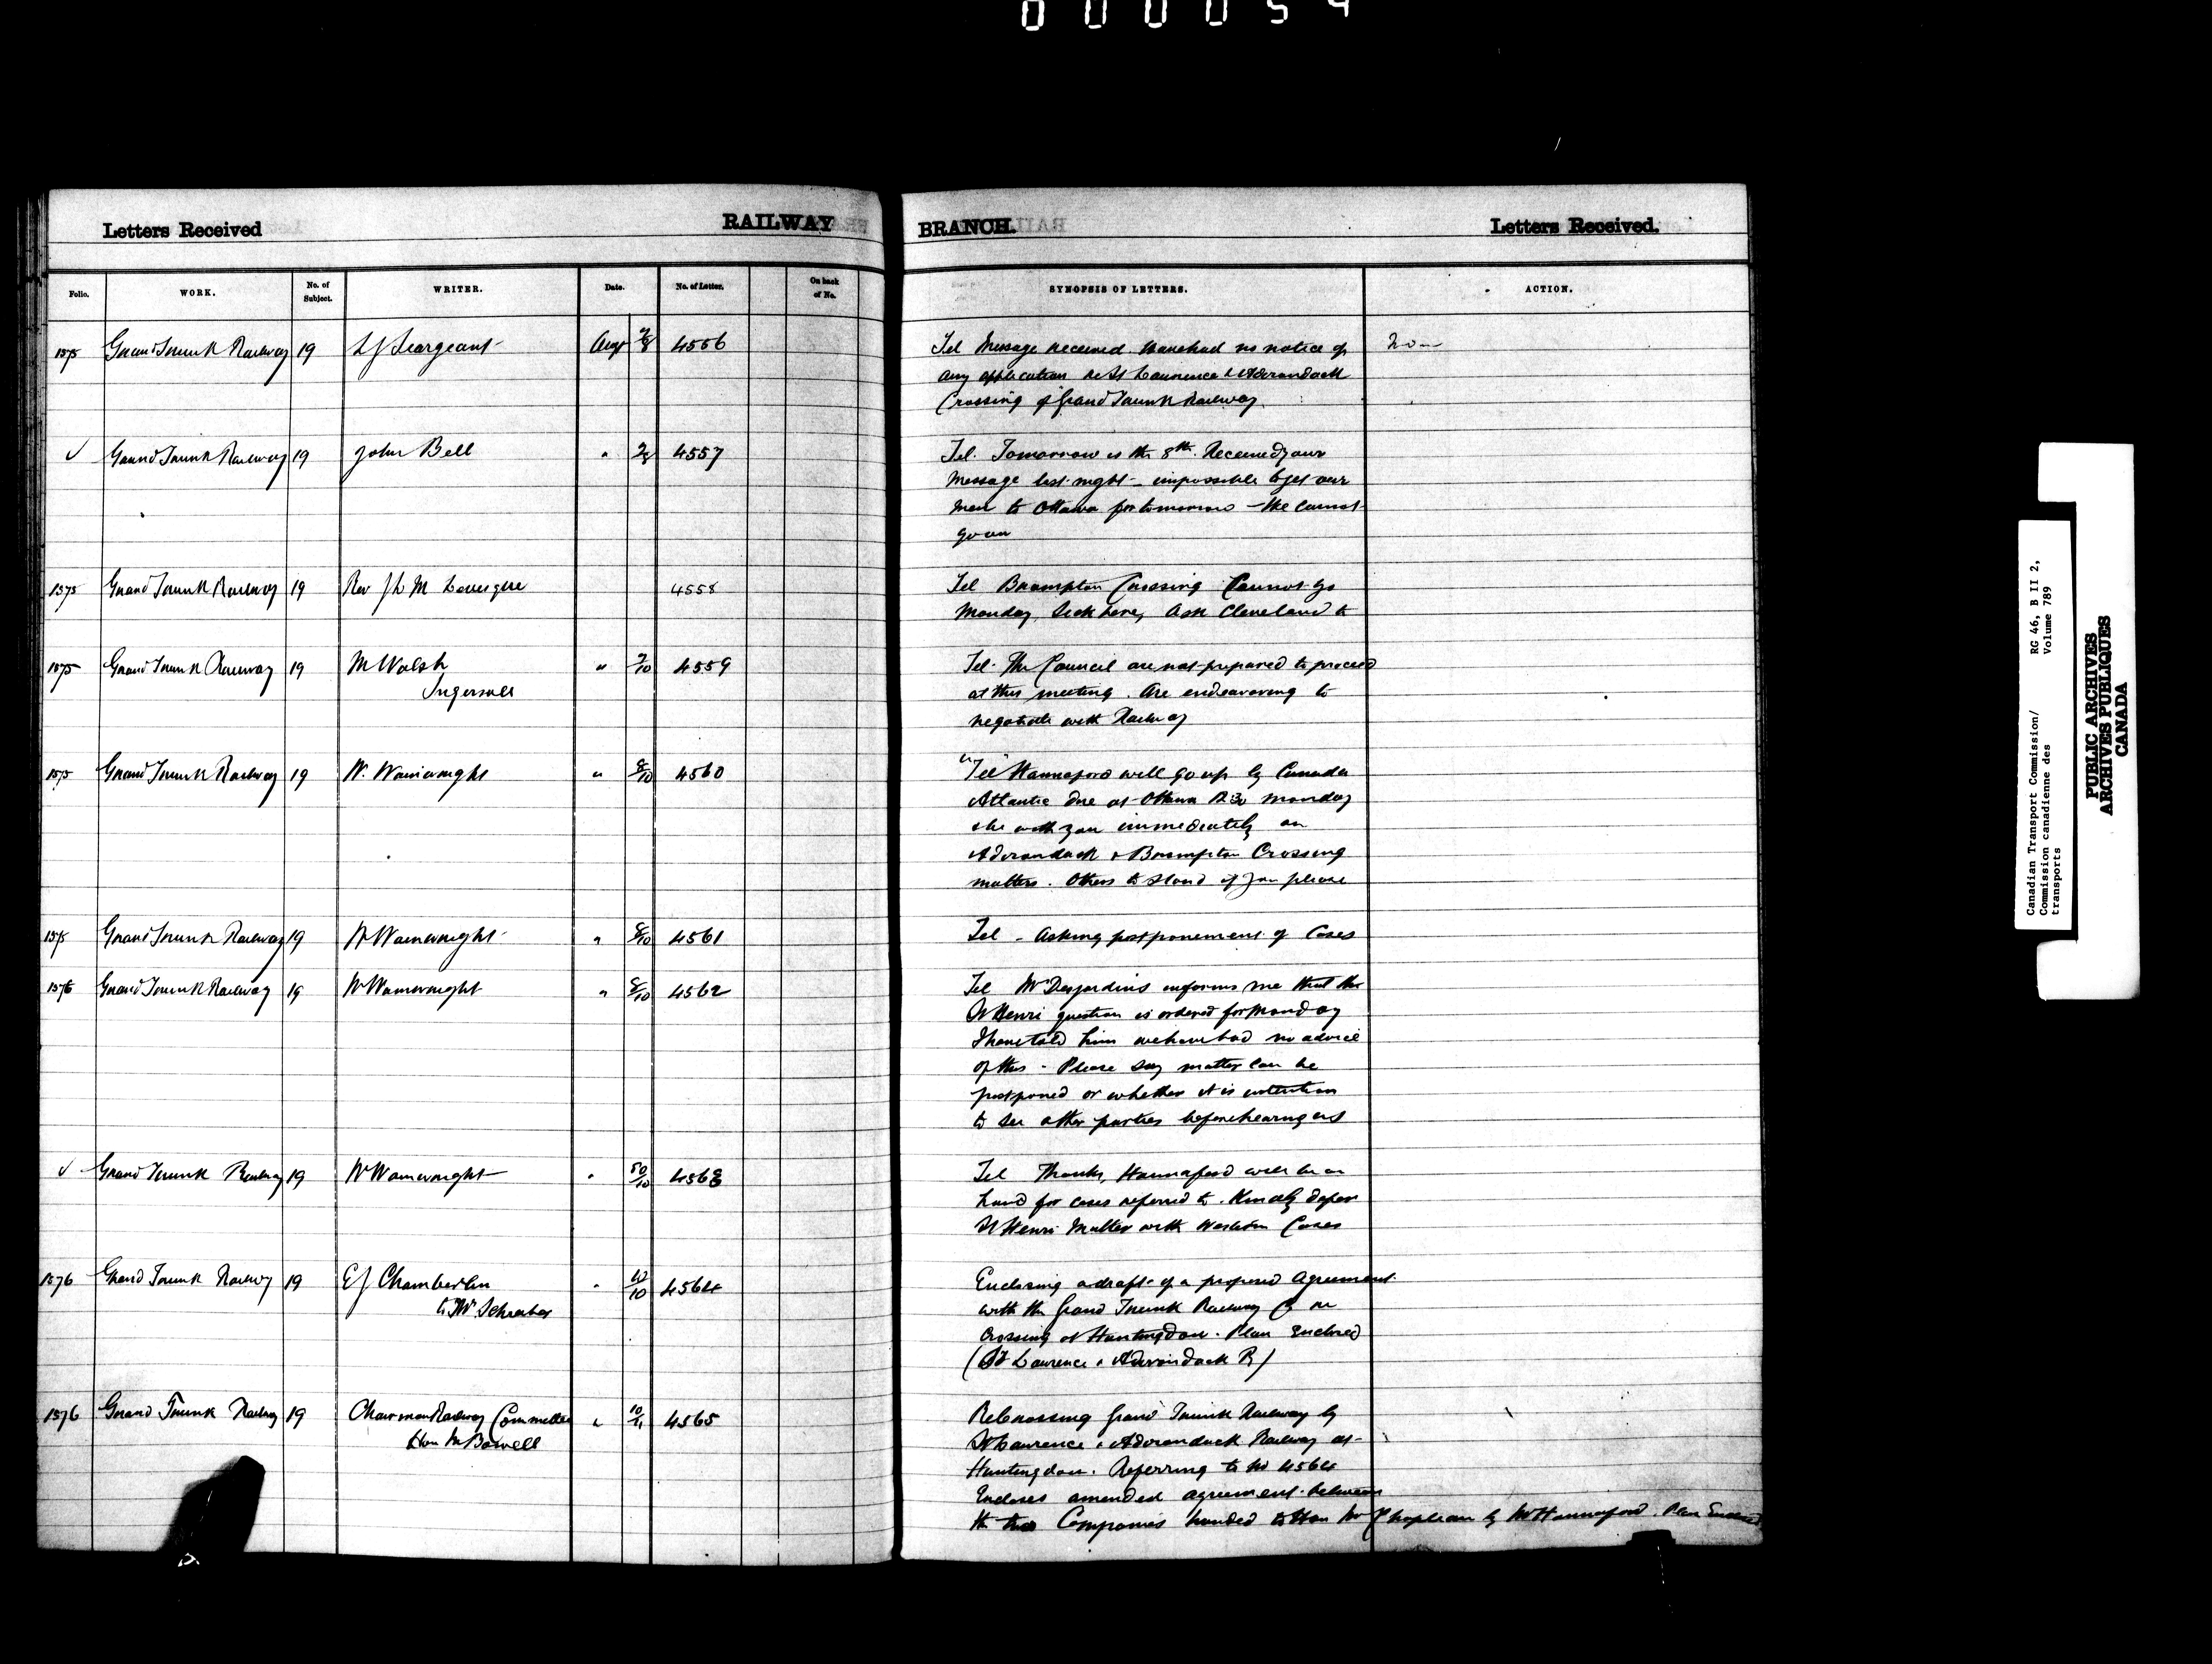 000054
Letters Received RAILWAY BRANCH. Letters Received.
Folio. WORK. No. of Subject. WRITER. Date. No. of Letter. On back of No. SYNOPSIS OF LETTERS. ACTION.
1575 Grand Trunk Railway 19 L J Seargeant Aug 7/8 4556 Tel Message received. Have had no notice of
any application re St Lawrence & Adirondack
Crossing of Grand Trunk Railway
✓ Grand Trunk Railway 19 John Bell " 7/8 4557 Tel. Tomorrow is the 8th. Received your
message last night - impossible to get our
men to Ottawa for tomorrow - We cannot
go on
1575 Grand Trunk Railway 19 Rev 4558 Tel Brompton Crossing Cannot go
Monday, Sick here, Ask Cleveland to
1575 Grand Trunk Railway 19 M Walsh " 7/10 4559 Tel. The Council are not prepared to proceed
Ingersoll at this meeting. Are endeavoring to
negotiate with Railway
1575 Grand Trunk Railway 19 W. Wainwright " 8/10 4560 "Tel" Hannaford will go up by Canada
Atlantic due at Ottawa Monday
with you immediately on
Adirondack & Brompton Crossing
matters. Others to stand if you please
1575 Grand Trunk Railway 19 W Wainwright " 8/10 4561 Tel - Asking postponement of Cases
1576 Grand Trunk Railway 19 W Wainwright " 8/10 4562 Tel Mr Desjardins informs me that the
St Henri question is ordered for Monday
I have told him we have had no advice
of this - Please say matter can be
postponed or whether it is intention
to see other parties before hearing us
✓ Grand Trunk Railway 19 W Wainwright " 4563 Tel Thanks, Hannaford will be on
hand for cases referred to. Kindly defer
St Henri Matter with Western Cases
1576 Grand Trunk Railway 19 E J Chamberlin " 10/10 4564 Enclosing a draft of a proposed Agreement
to Mr Schreiber with the Grand Trunk Railway Co re
Crossing at Huntingdon. Plan Enclosed
(St Lawrence & Adirondack R)
1576 Grand Trunk Railway 19 Chairman Railway Committee " 10/11 4565 Re Crossing Grand Trunk Railway by
Hon M Bowell St Lawrence & Adirondack Railway at
Huntingdon. Referring to No 4564
Encloses amended agreement between
the two Companies handed to Hon Mr Chapleau by Mr Hannaford. Plan Enclosed
Canadian Transport Commission/ RG 46, B II 2,
Commission canadienne des Volume 789
transports
PUBLIC ARCHIVES
ARCHIVES PUBLIQUES
CANADA